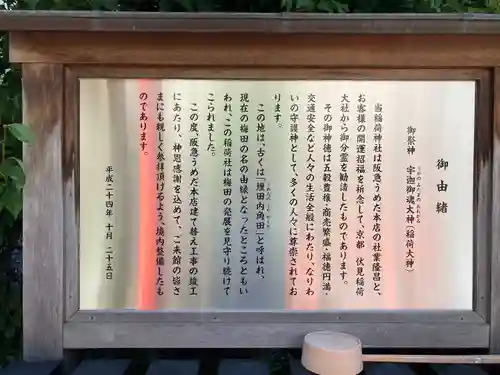 御由緒
御祭神　宇迦御魂大神（稲荷大神）
当稲荷神社は阪急うめだ本店の社業隆昌と、
お客様の開運招福を祈念して、京都 伏見稲荷
大社から御分霊を勧請したものであります。
その御神徳は五穀豊穣・商売繁盛・福徳円満・
交通安全など人々の生活全般にわたり、なりわ
いの守護神として、多くの人々に尊崇されてお
ります。
この地は、古くは「埋田内角田」と呼ばれ、
現在の梅田の名の由縁となったところともい
われ、この稲荷社は梅田の発展を見守り続けて
こられました。
この度、阪急うめだ本店建て替え工事の竣工
にあたり、神恩感謝を込めて、ご来館の皆さ
まにも親しく参拝頂けるよう、境内整備したも
のであります。
平成二十四年 十月 二十五日